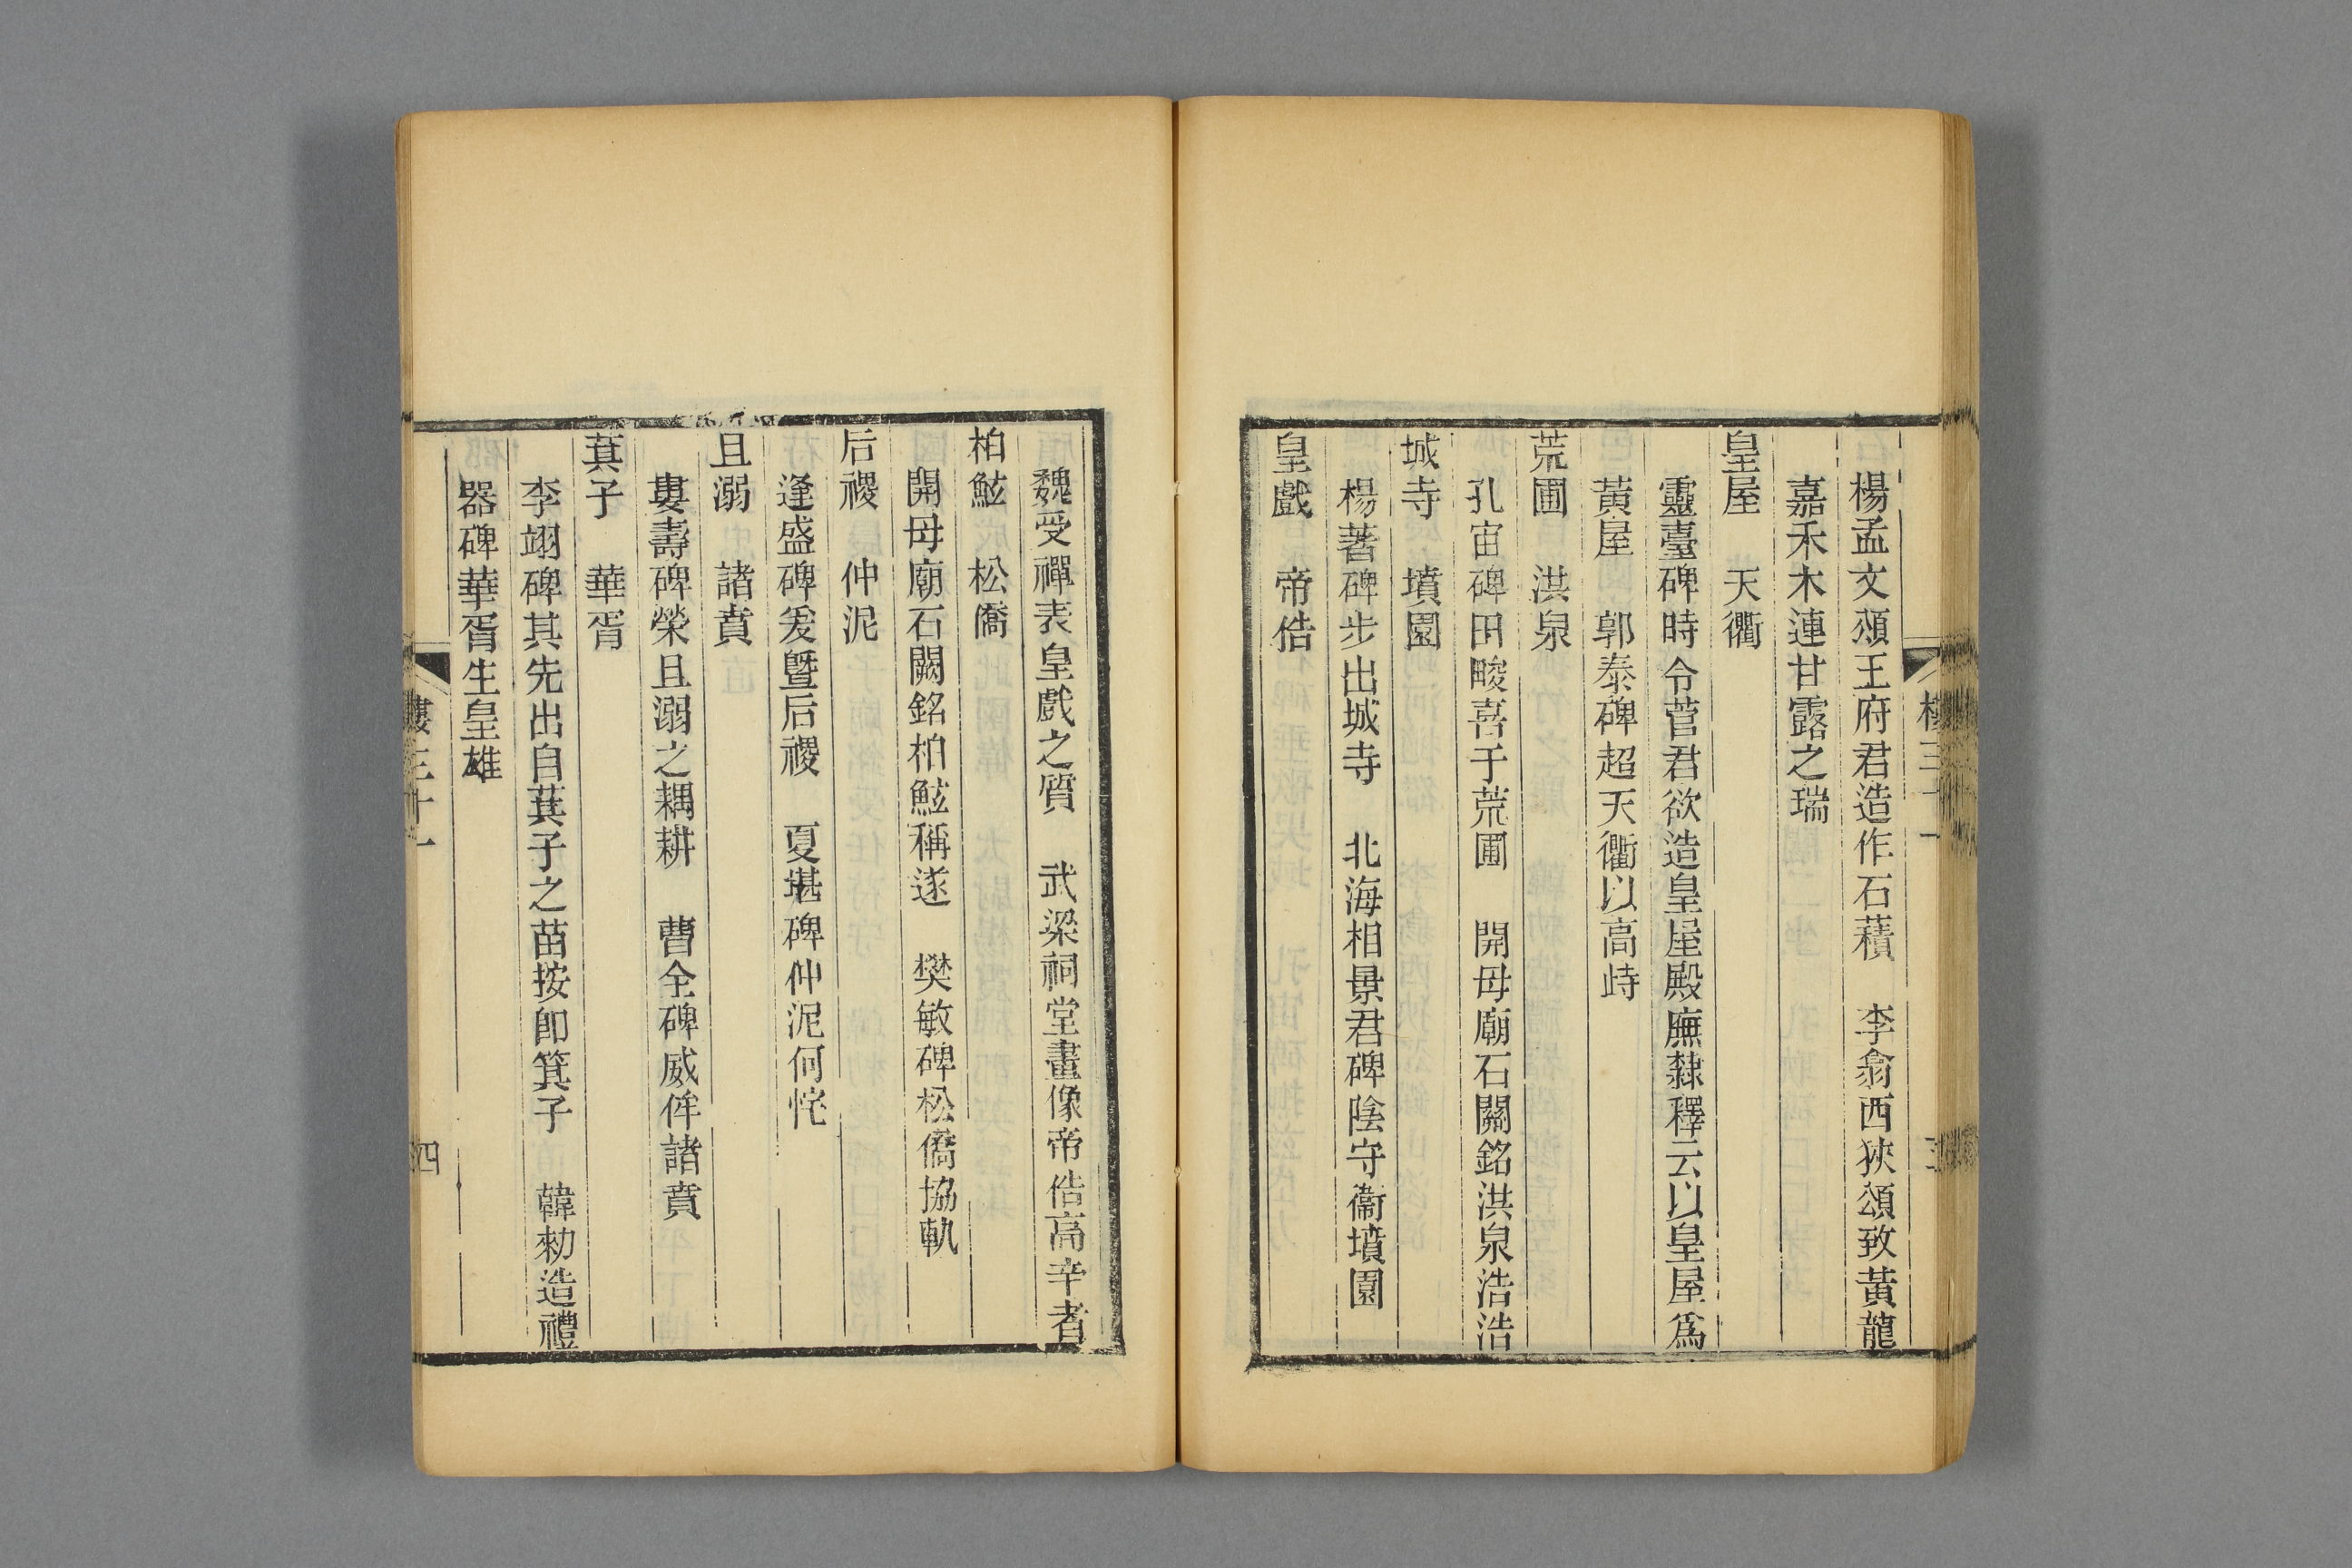 楊孟文頌王府君造作石積　李翕西狹頌致黃龍
嘉禾木連甘露之瑞
皇屋　天衢
靈臺碑時令菅君欲造皇屋殿廡隸釋云以皇屋爲
黃屋　郭泰碑超天衢以高峙
荒圃　洪泉
孔宙碑田畯喜于荒圃　開母廟石闕銘洪泉浩浩
城寺　墳園
楊著碑步出城寺　北海相景君碑陰守衞墳園
皇戲　帝俈
魏受禪表皇戲之質　武梁祠堂畫像帝俈高辛者
柏鮌　松僑
開母廟石闕銘柏鮌稱遂　樊敏碑松僑協軌
后稷　仲泥
逢盛碑爰曁后稷　夏堪碑仲泥何侘
且溺　諸賁
婁壽碑榮且溺之耦耕　曹全碑威侔諸賁
萁子　華胥
李翊碑其先出自萁子之苗按卽箕子　韓勑造禮
器碑華胥生皇雄
三十一
四